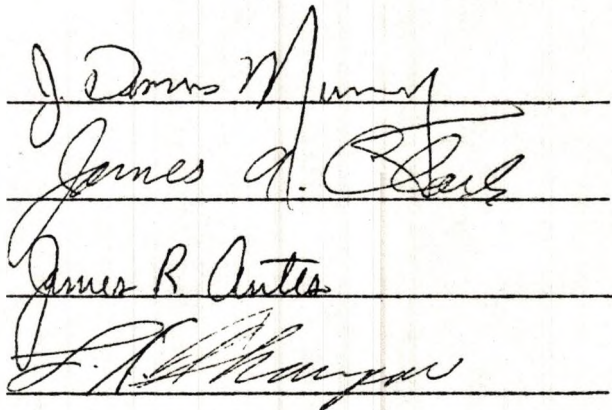 J. Dennis Murray
James A. Clark
James R. Antes